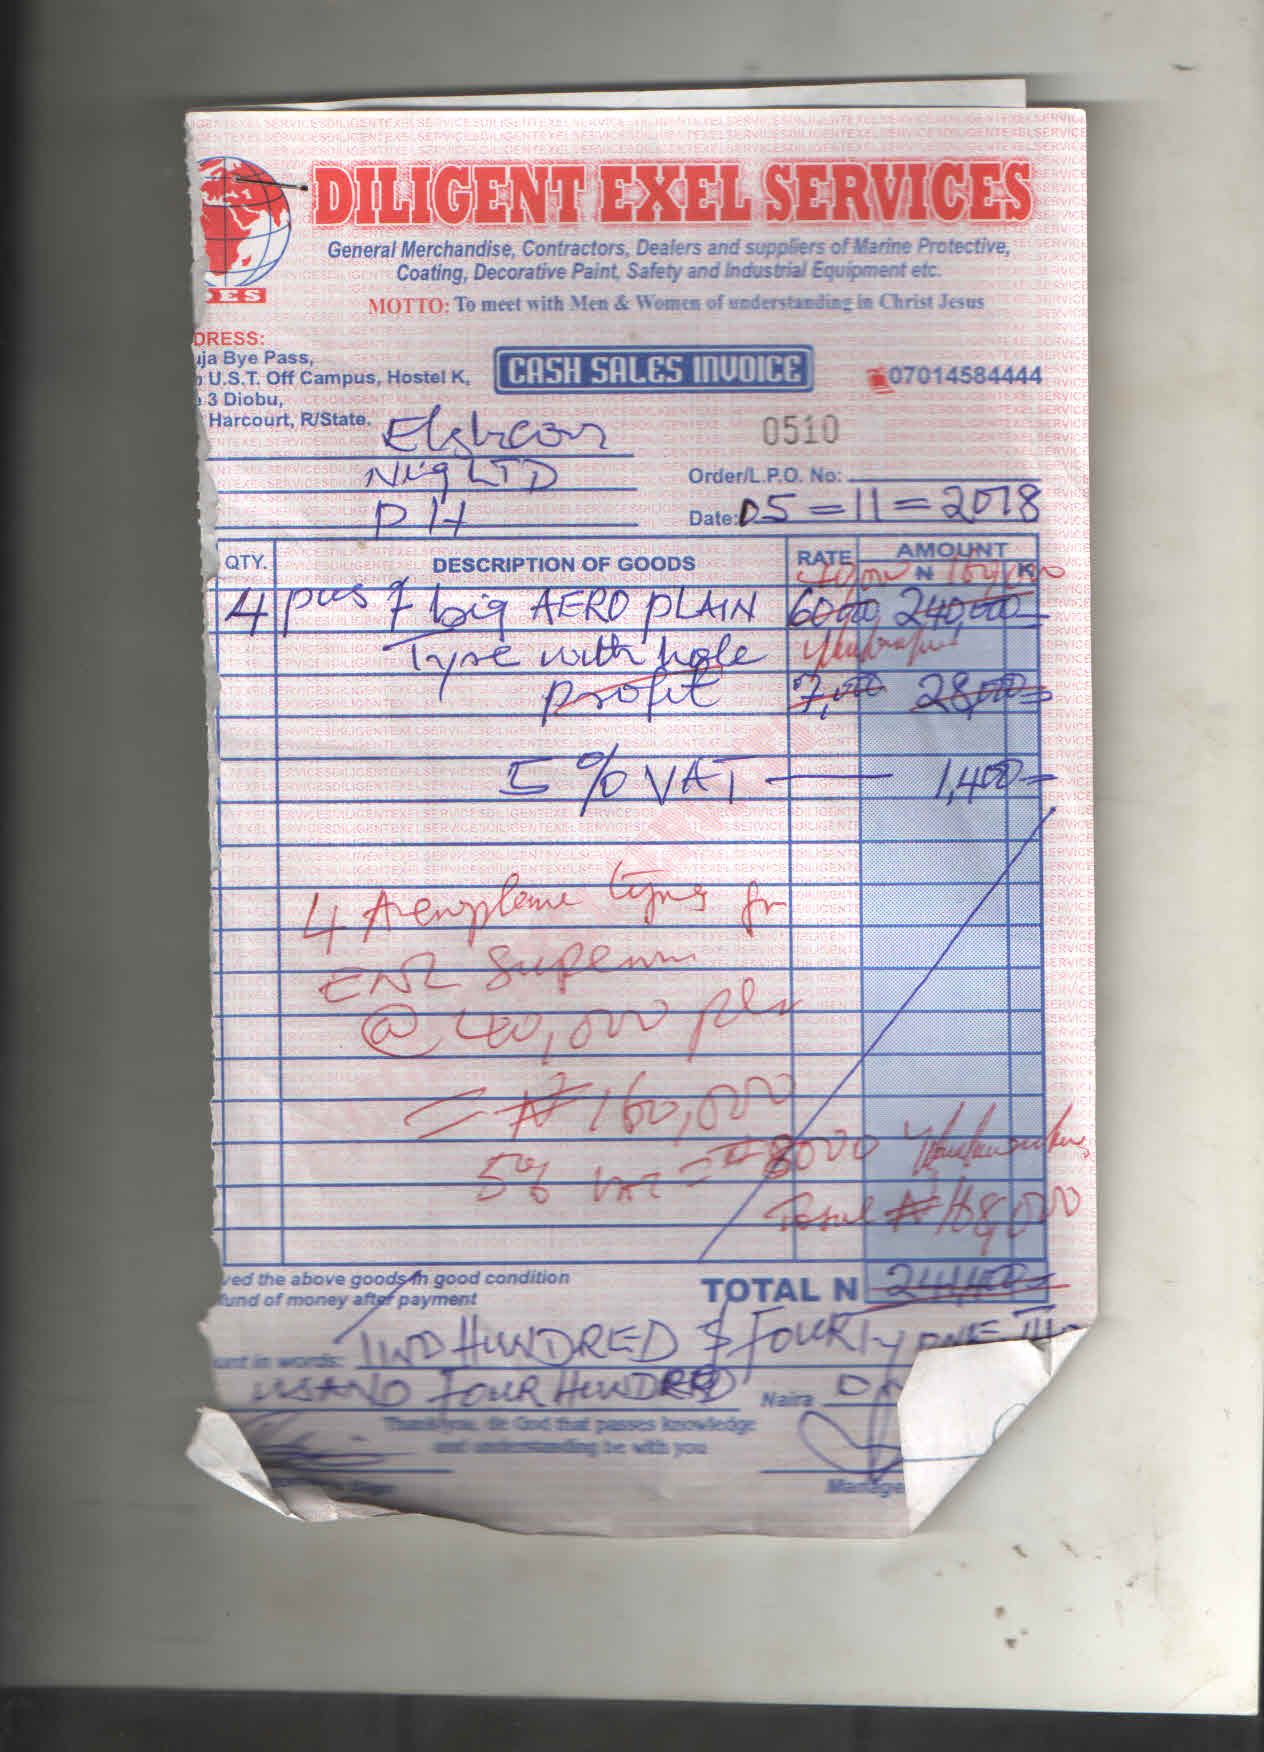 DILIGENT EXEL SERVICES
General Merchandise, Contractors, Dealers and suppliers of Marine Protective,
Coating, Decorative Paint, Safety and Industrial Equipment etc.
MOTTO: To meet with Men & Women of understanding in Christ Jesus
DES
DRESS:
uja Bye Pass,
U.S.T. Off Campus, Hostel K,
3 Diobu,
Harcourt, R/State.
CASH SALES INVOICE
07014584444
0510
Nig LTD
PH
Order/L.P.O. No:
Date: 05=11=2018
QTY. DESCRIPTION OF GOODS RATE AMOUNT
N K
4 pcs of big AERO PLAIN 60000 240,000
Tyre with hole
profit 7,000 28,000
5% VAT 1,400
4 Aeroplane tyres for
ENL Supreme
@ 40,000 pls
= ₦160,000
5% VAT = ₦8000
Total ₦168,000
ved the above goods in good condition
fund of money after payment
TOTAL N 241,400
unt in words: TWO HUNDRED & FOURTY ONE THO
USAND FOUR HUNDRED Naira
Thank you, de God that passes knowledge
and understanding be with you
Manage